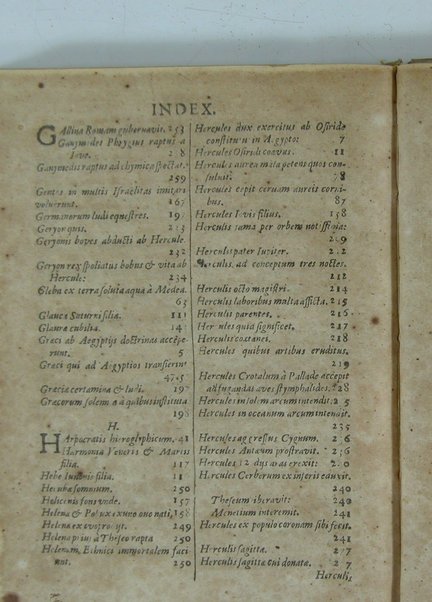 INDEX.
GAllina Romam gubernavit. 253
Ganymedes Phrygius raptus a
Jove.
Ganymedis raptus ad chymica spectat.
259
Gentes in multis Israelitas imitari
voluerunt. 167
Germanorum ludi equestres. 19
Geryor quis. 233
Geryonis boves abducti ab Hercule.
232
Geryon rex spoliatus bobus & vita ab
Hercule. 234
Gleba ex terra soluta aqua à Medea.
63
Glauce Saturni filia. 111
Glaura cubilia. 14
Græci ab Ægyptijs doctrinas accepe-
runt. 5
Græci qui ad Ægyptios transierint
47.
Græcia certamina & ludi. 197
Græcorum solenn a à quibus instituta
198
H.
HArpocratis hieroglyphicum. 41
Harmonia Veneris & Martis
filia. 117
Hebe Iunonis filia. 11
Hecubæ somnium. 250
Heliconis fons unde. 157
Helena & Pollux ex uno ovo nati, 158
Helena ex ovo prodijt. 249
Helena prius à Theseo rapta 250
Helenam, Ethnici immortalem faci
unt. 250
Hercules dux exercitus ab Osiride
constitutus in Ægypto: 7
Hercules Osiridi coævus. 11
Hercules aurea mala petens quos con-
suluit. 78
Hercules cepit cervam aureis corni-
bus. 87
Hercules Iovis filius. 158
Herculis fama per orbem
209
Herculis pater Iupiter.
Herculis, ad conceptum tres noctes.
212
Herculis octo magistri. 214
Herculis laboribus multa afficta. 215
Herculis parentes. 216
Hercules quid significet. 217
Herculis coætanei. 218
Hercules quibus artibus eruditus.
219
Hercules Crotalum à Pallade accepit
ad fugandas aves stymphalides. 228
Hercules in solem arcum intendit. 2 5
Hercules in oceanum arcum intendit.
235
Hercules aggressus Cygnum. 236
Hercules Antæum prostravit. 236
Hercules 12 dijs aras erexit:
Hercules Cerberum ex inferis eduxit.
240
Theseum liberavit: 240
Menetium interemit. 241
Hercules ex populo coronam sibi fecit.
241
Herculis sagitta. 2 7
Herculis sagitta cui donata. 2 7
Herculis